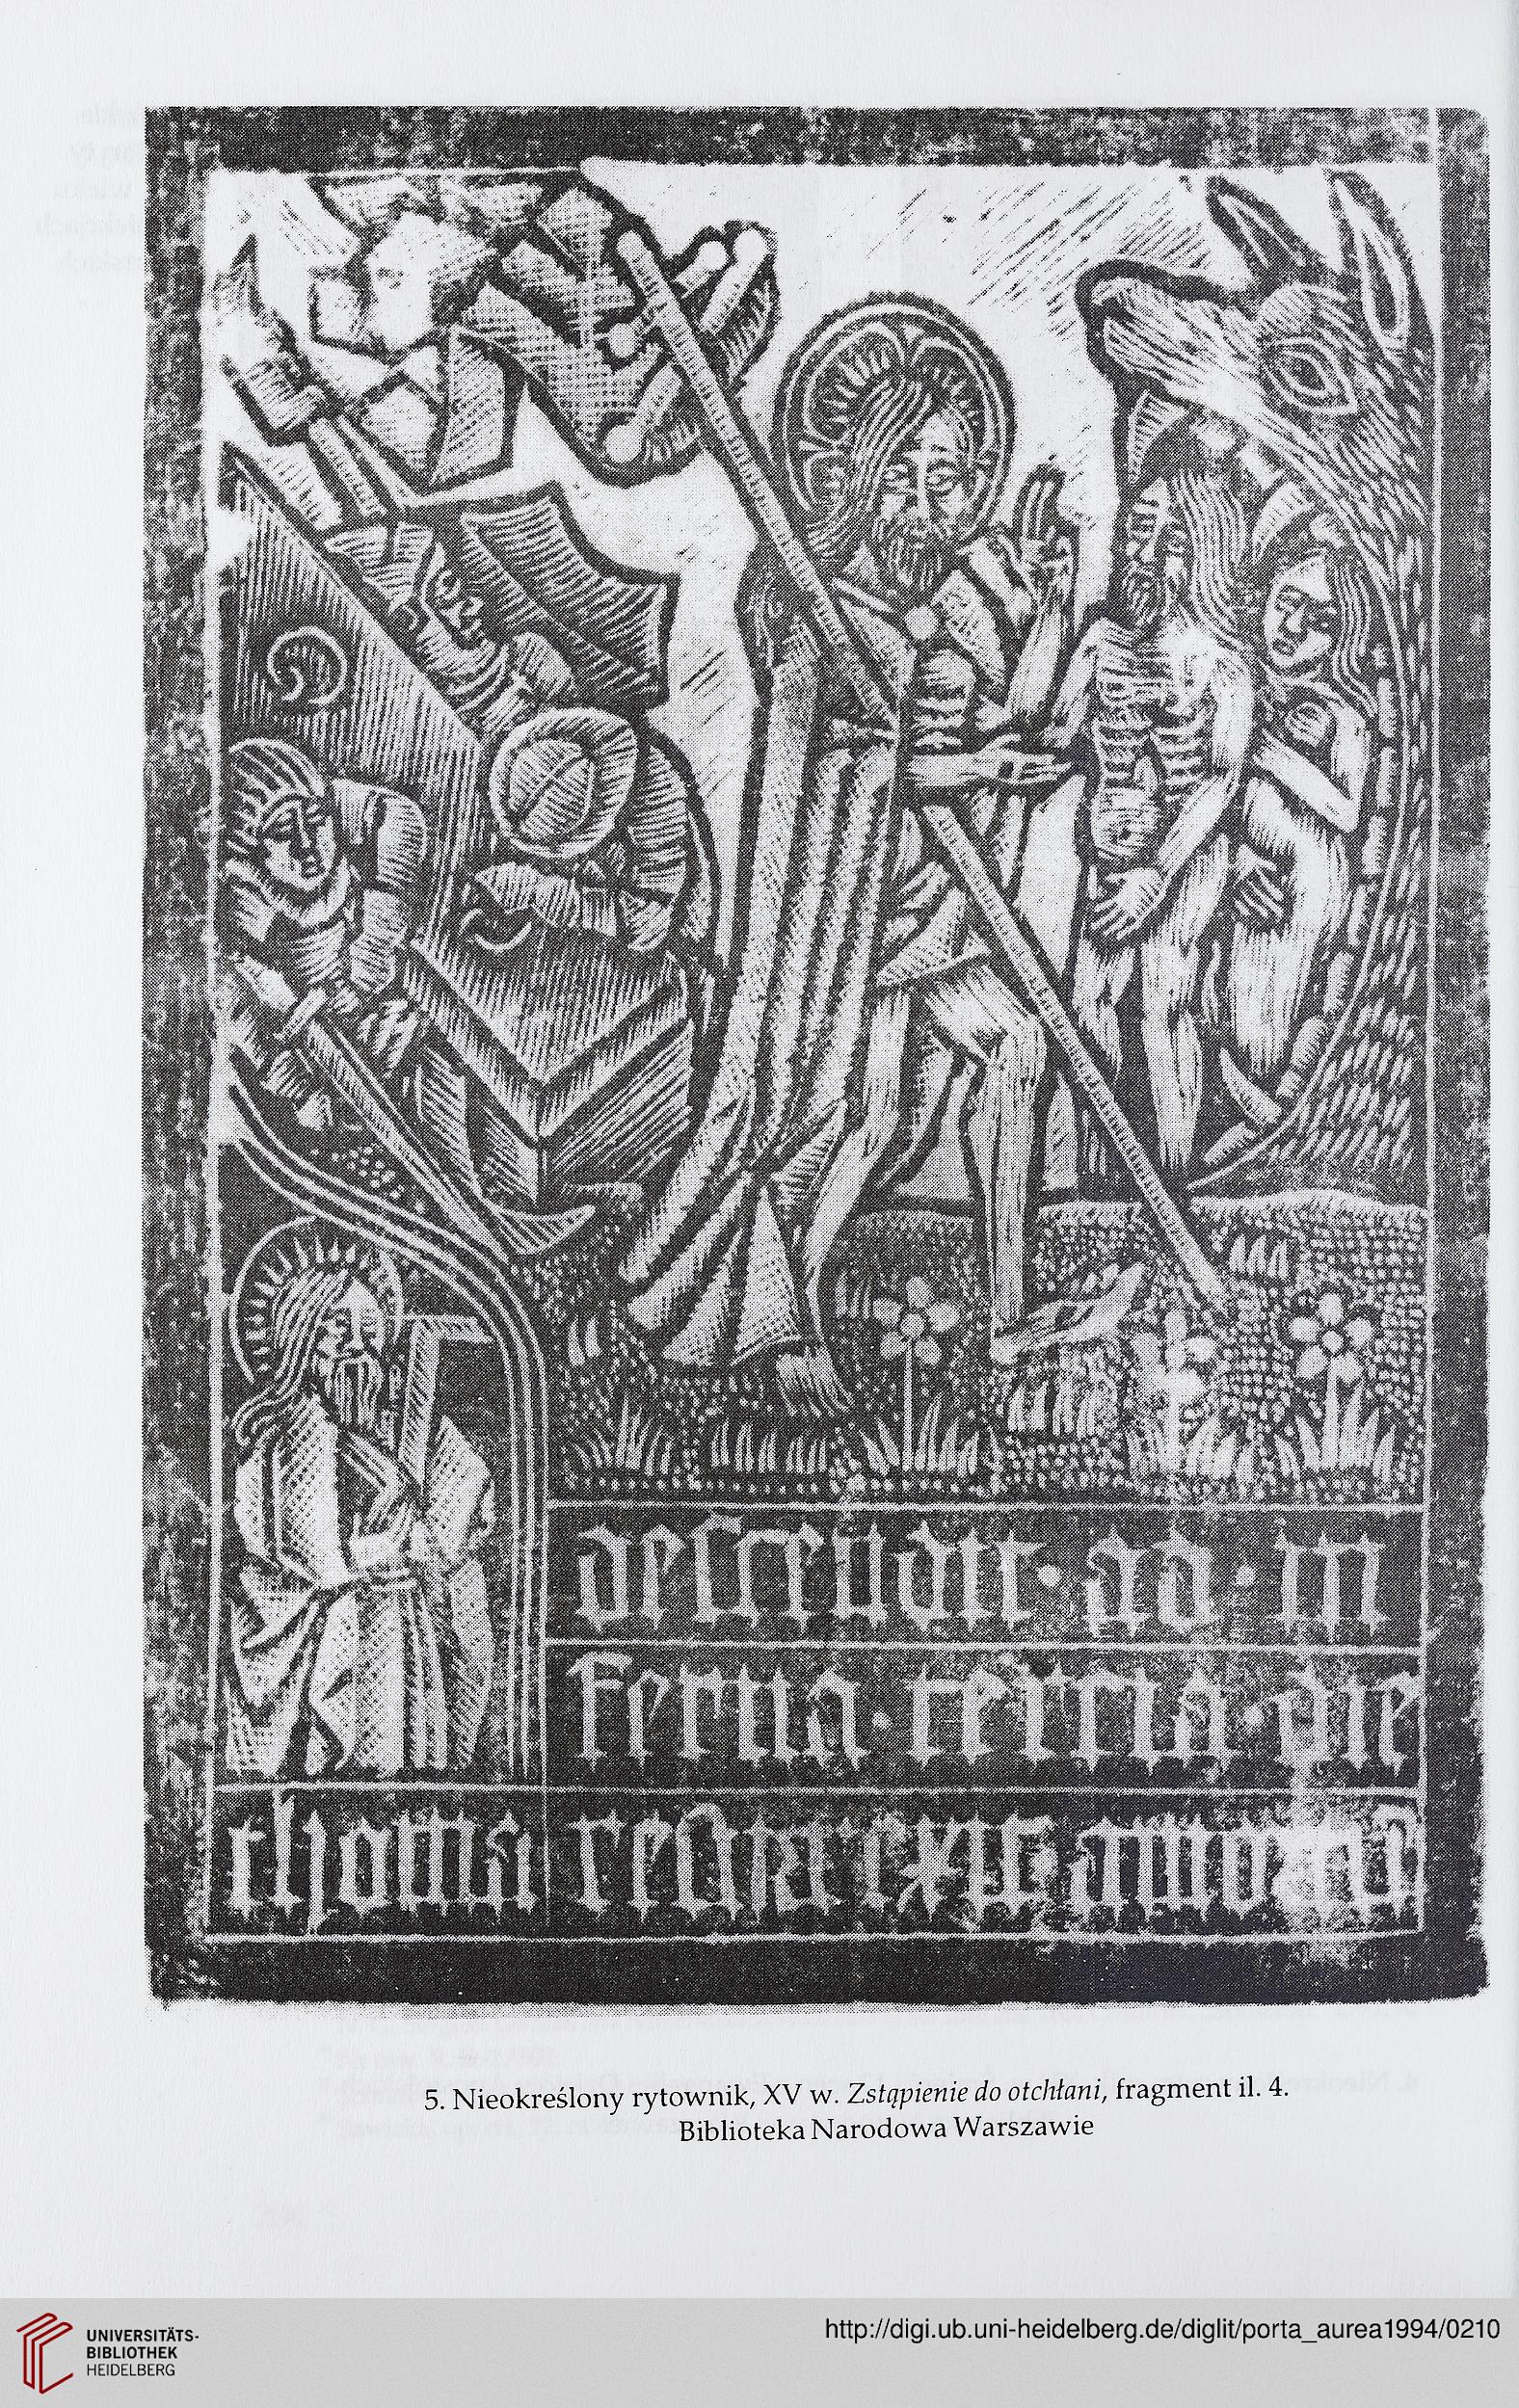 descendit · ad · in
ferna · tercia · die
thoma resurexit
5. Nieokreślony rytownik, XV w. Zstąpienie do otchłani, fragment il. 4.
Biblioteka Narodowa Warszawie
UNIVERSITÄTS-
BIBLIOTHEK
HEIDELBERG
http://digi.ub.uni-heidelberg.de/diglit/porta_aurea1994/0210